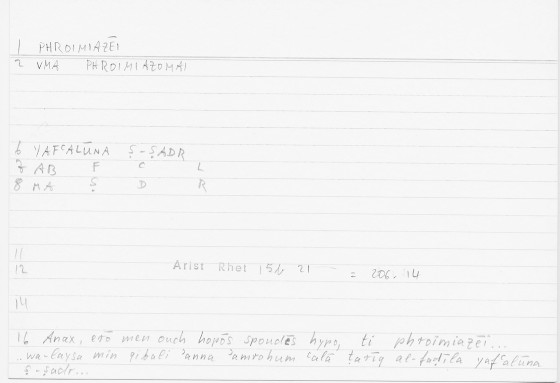 1 PHROIMIAZĒI
2 VMA PHROIMIAZOMAI
6 YAFʿALŪNA Ṣ-ṢADR
7 AB F ʿ L
8 MA Ṣ D R
11
12 Arist Rhet 15b 21 = 206.14
14
16 Anax, erō men ouch hopōs spoudēs hypo, ti phroimiazēi...
..wa-laysa min qibali ʾanna ʾamrahum ʿalā ṭarīq al-faḍīla yafʿalūna
ṣ-ṣadr...